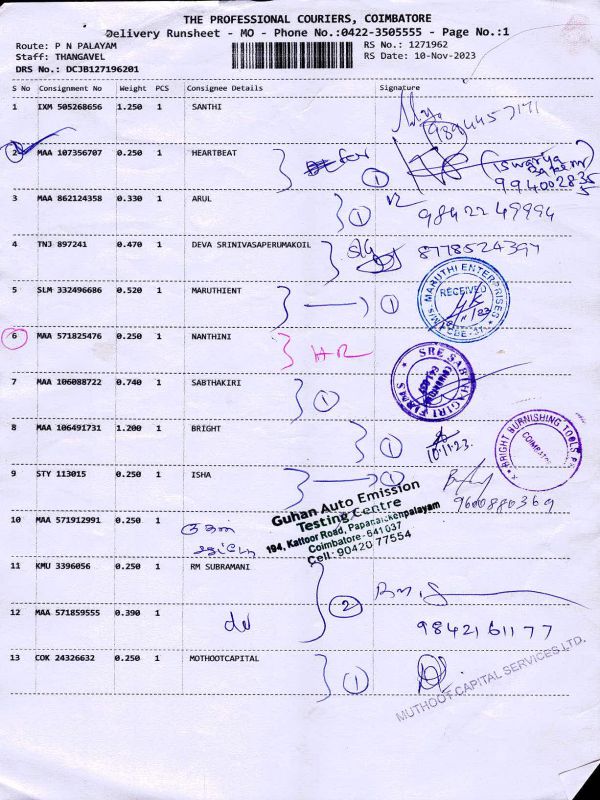 THE PROFESSIONAL COURIERS, COIMBATORE
Delivery Runsheet - MO - Phone No.:0422-3505555 - Page No.:1
Route: P N PALAYAM
RS No.: 1271962
Staff: THANGAVEL
RS Date: 10-Nov-2023
DRS No.: DCJB127196201
S No Consignment No Weight PCS Consignee Details Signature
1 IXM 505268656 1.250 1 SANTHI
9894457171
2 MAA 107356707 0.250 1 HEARTBEAT
1 Iswarya
9940028355
3 MAA 862124358 0.330 1 ARUL
1 9842249994
4 TNJ 897241 0.470 1 DEVA SRINIVASAPERUMAKOIL
8778524397
5 SLM 332496686 0.520 1 MARUTHIENT
1
M/s. MARUTHI ENTERPRISES
RECEIVED
CBE-37
6 MAA 571825476 0.250 1 NANTHINI
HR
7 MAA 106088722 0.740 1 SABTHAKIRI
1
SRE SABTHAGIRI FIRMS
8 MAA 106491731 1.200 1 BRIGHT
1 10.11.23.
BRIGHT BURNISHING TOOLS
9 STY 113015 0.250 1 ISHA
1 9600880369
10 MAA 571912991 0.250 1
Guhan Auto Emission
Testing Centre
194, Kattoor Road, Papanaickenpalayam
Coimbatore-641037
Cell: 90420 77554
11 KMU 3396056 0.250 1 RM SUBRAMANI
2
12 MAA 571859555 0.390 1
9842161177
13 COK 24326632 0.250 1 MOTHOOTCAPITAL
1
MUTHOOT CAPITAL SERVICES LTD.